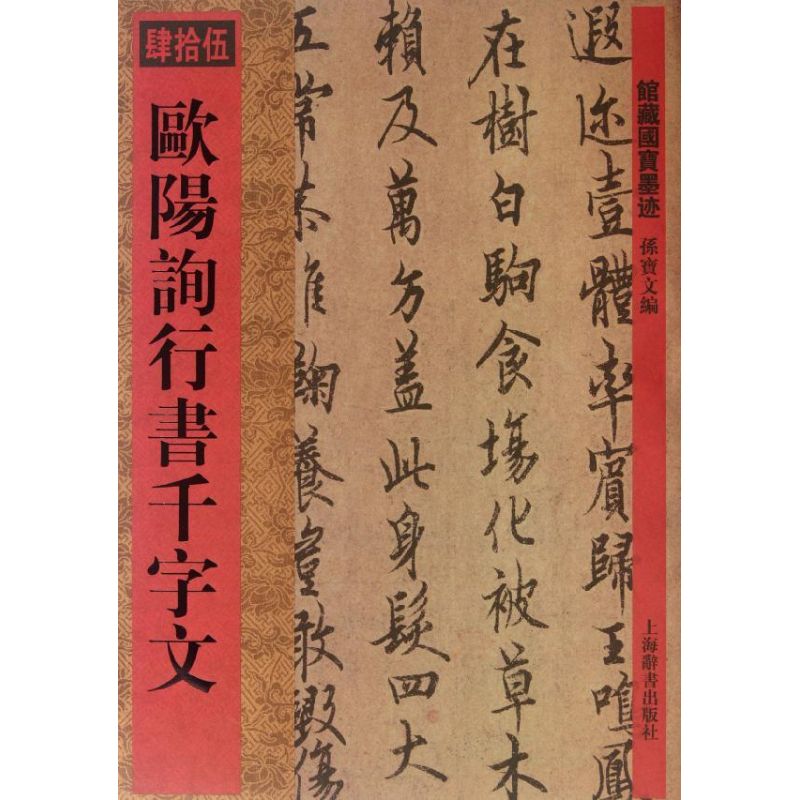 館藏國寶墨迹
孫寶文編
上海辭書出版社
遐迩壹體率賓歸王鳴鳳
在樹白駒食塲化被草木
賴及萬方蓋此身髮四大
五常恭惟鞠養豈敢毀傷
肆拾伍
歐陽詢行書千字文